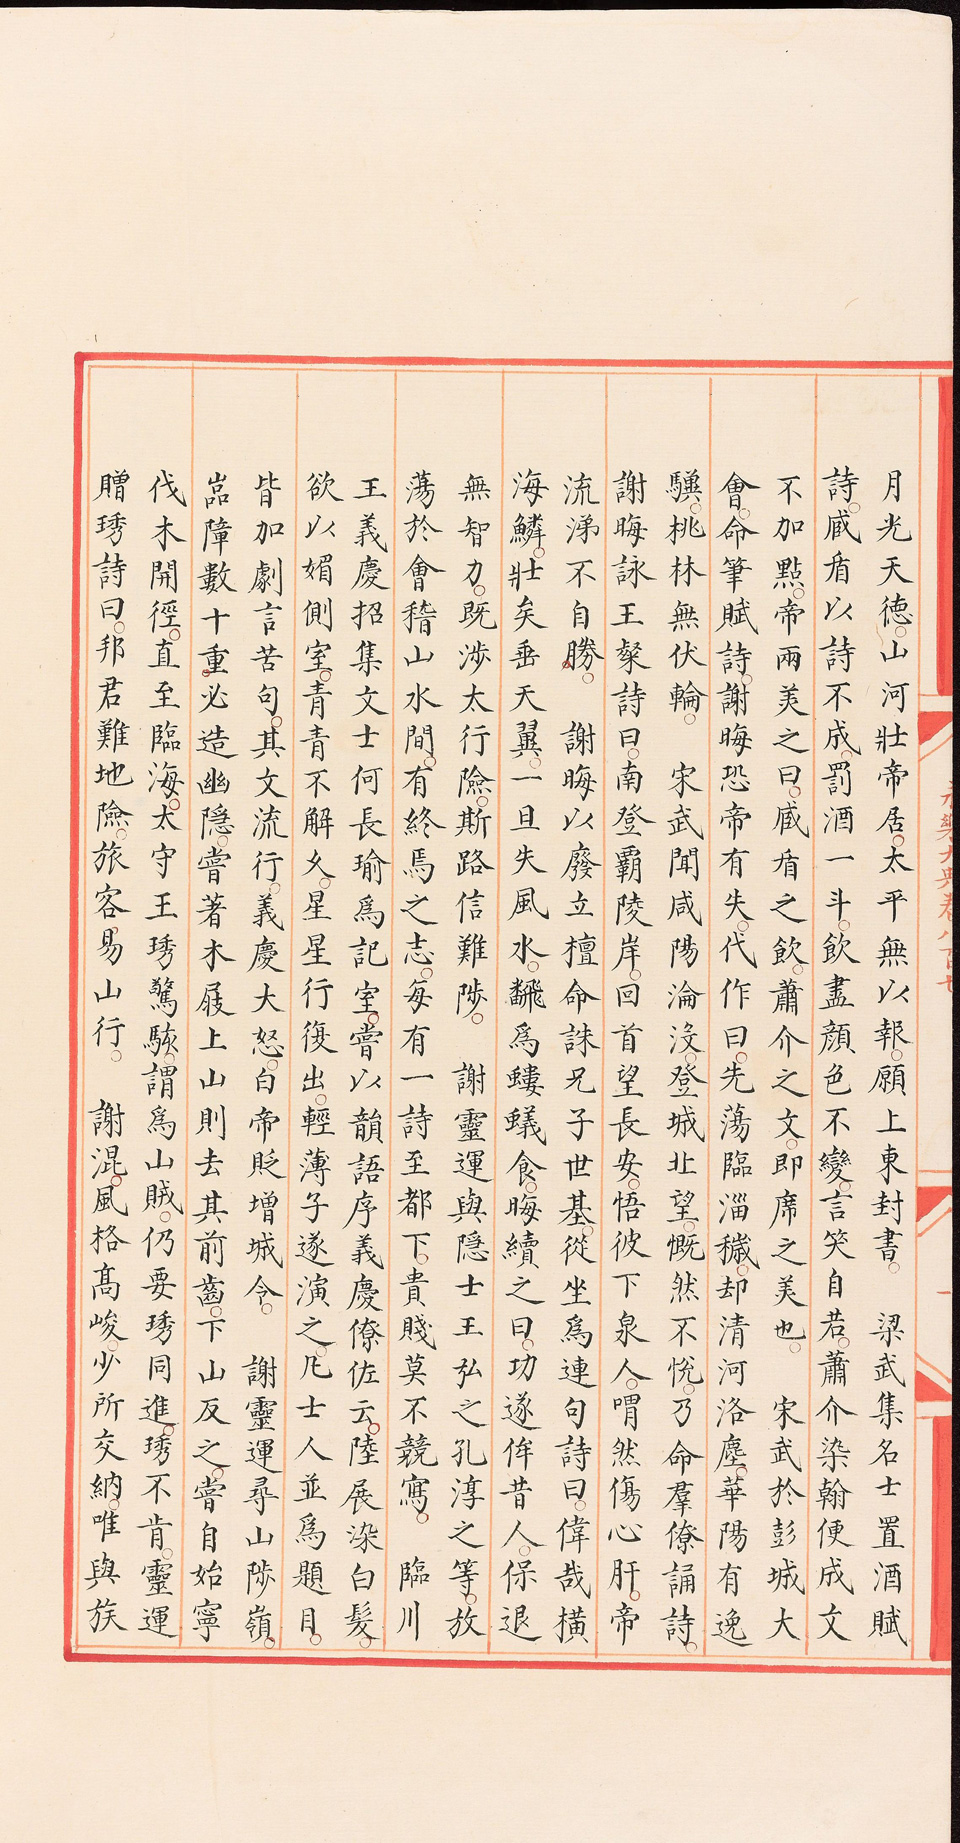 月光天德。山河壯帝居。太平無以報。願上東封書。　梁武集名士置酒賦
詩。臧盾以詩不成。罰酒一斗。飲盡顔色不變。言笑自若。蕭介染翰便成文
不加點。帝兩美之曰。臧盾之飲。蕭介之文。即席之美也。　宋武於彭城大
會。命筆賦詩。謝晦恐帝有失。代作曰。先蕩臨淄穢。却清河洛塵。華陽有逸
驥。桃林無伏輪。　宋武聞咸陽淪沒。登城北望。慨然不悅。乃命羣僚誦詩。
謝晦詠王粲詩曰。南登霸陵岸。回首望長安。悟彼下泉人。喟然傷心肝。帝
流涕不自勝。　謝晦以廢立檀命誅兄子世基。從坐爲連句詩曰。偉哉橫
海鱗。壯矣垂天翼。一旦失風水。飜爲螻蟻食。晦續之曰。功遂侔昔人。保退
無智力。既涉太行險。斯路信難陟。　謝靈運與隱士王弘之孔淳之等。放
蕩於會稽山水間。有終焉之志。每有一詩至都下。貴賤莫不競寫。　臨川
王義慶招集文士何長瑜爲記室。嘗以韻語序義慶僚佐云。陸展染白髮。
欲以媚側室。青青不解久。星星行復出。輕薄子遂演之。凡士人並爲題目。
皆加劇言苦句。其文流行。義慶大怒。白帝貶增城令。　謝靈運尋山陟嶺。
嵓障數十重。必造幽隱。嘗著木屐上山則去其前齒。下山反之。嘗自始寧
伐木開徑。直至臨海。太守王琇驚駭。謂爲山賊。仍要琇同進。琇不肯。靈運
贈琇詩曰。邦君難地險。旅客易山行。　謝混。風格高峻。少所交納。唯與族
永樂大典卷八百七